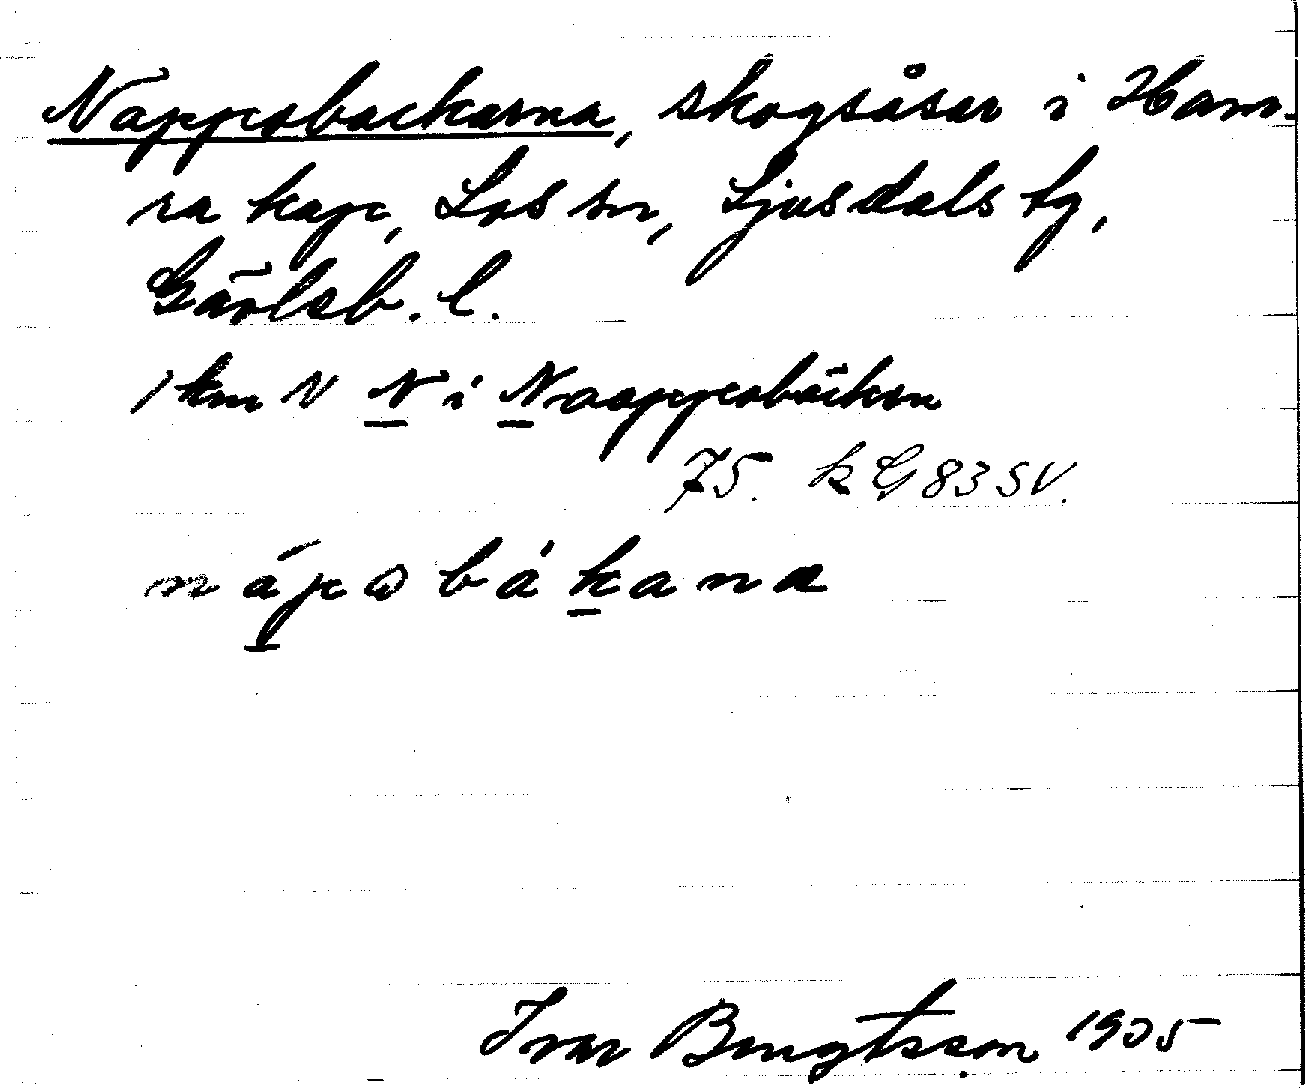 Nappobackarna, skogsåsar i Ham-
ra kap, Los sn, Ljusdals tg,
Gävleb. l.
1 km V N i Nappobäcken
75. k G 83 SV.
nápobákana
Ivar Bengtsson 1935